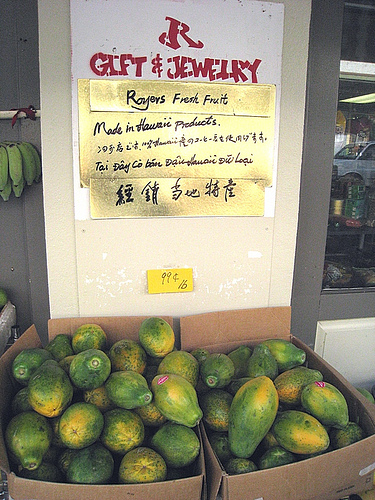 R
GIFT & JEWELRY
Royers Fresh Fruit
Made in Hawaii Products.
Tại Đây Có bán Đậu Hawaii Đủ Loại
經銷當地特產
99¢
lb